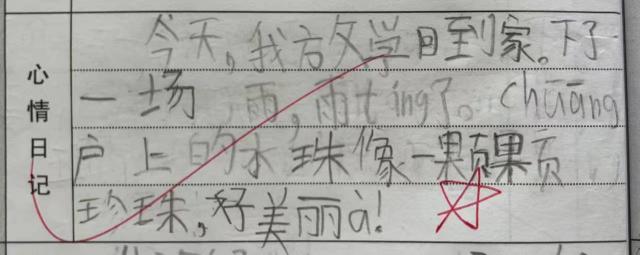 心情日记
今天,我方文学日到家。下了
一场雨,雨tíng了。chūāng
户上的水珠像一颗颗
珍珠,好美丽à!